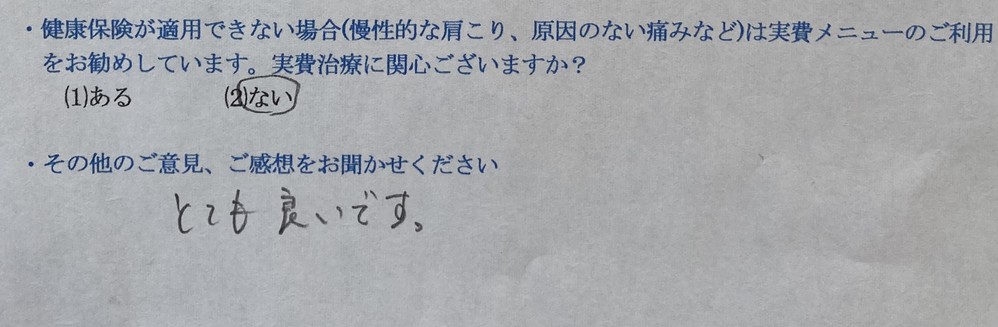 ・健康保険が適用できない場合(慢性的な肩こり、原因のない痛みなど)は実費メニューのご利用
をお勧めしています。実費治療に関心ございますか？
(1)ある (2)ない
・その他のご意見、ご感想をお聞かせください
とても良いです。